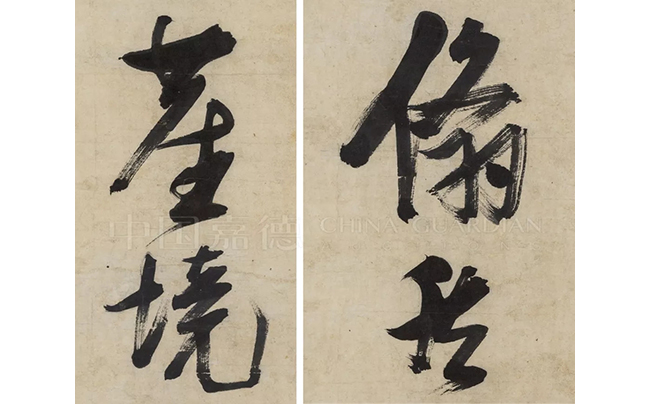 翛
産
境
中国嘉德 CHINA GUARDIAN